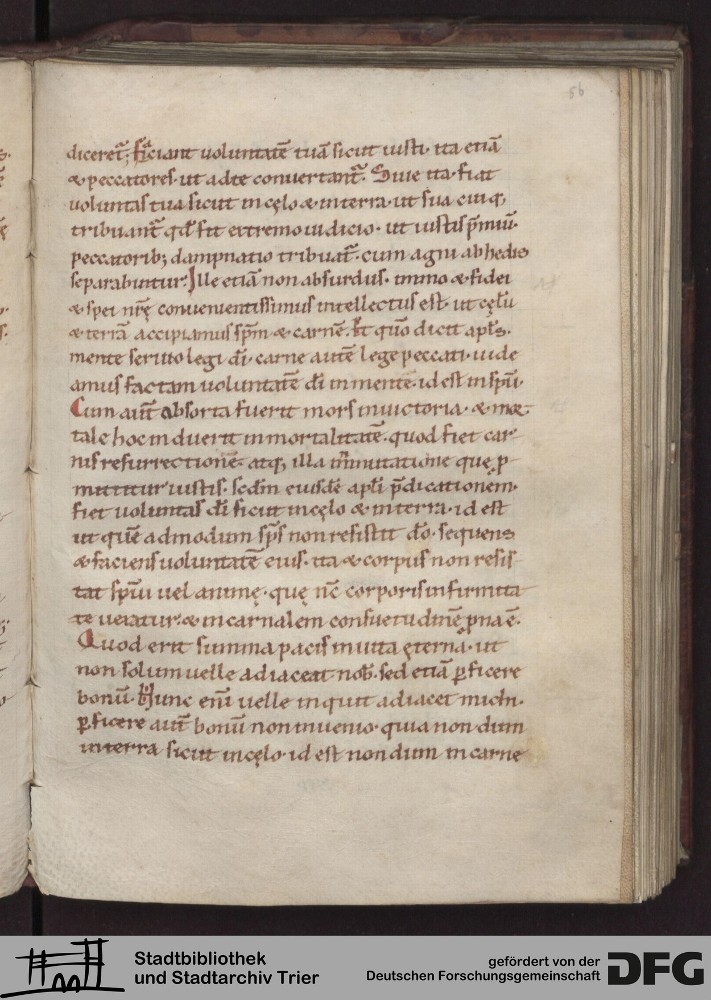 56
diceret᷑; faciant uoluntatē tuā sicut iusti· ita etiā
& peccatores· ut ad te conuertant᷑. Siue ita· fiat
uoluntas tua sicut in cęlo & in terra· ut sua cuiq;
tribuant᷑ qđ fit extremo iudicio· ut iustis p̄miū·
peccatorib; dampnatio tribuat᷑· cum agni ab hedis
separabuntur. Ille etiā non absurdus· immo & fidei
& spei nr̄ę conuenientissimus intellectus est· ut cęlū
& terrā accipiamus sp̄m & carnē. Et quō dicit apl̄s·
mente seruio legi dī· carne autē lege peccati· uide
amus factam uoluntatē dī in mente· id est in sp̄u·
Cum aūt absorta fuerit mors in uictoria· & mor
tale hoc induerit inmortalitatē· quod fiet car
nis resurrectione· atq; illa inmutatione quę p
mittitur iustis· scđm eiusdē apl̄i p̄dicationem·
fiet uoluntas dī sicut in cęlo & in terra· id est
ut quē admodum sp̄s non resistit dō· sequens
& faciens uoluntatē eius· ita & corpus non resis
tat sp̄ui uel animę· quę nc̄ corporis infirmita
te uexatur· & in carnalem consuetudinē prona ē·
Quod erit summa pacis in uita ęterna· ut
non solum uelle adiaceat nob̄· sed etiā ꝑficere
bonū. Nunc enī uelle inquit adiacet michi·
ꝑficere aūt bonū non inuenio· quia nondum
in terra sicut in cęlo· id est nondum in carne
Stadtbibliothek
und Stadtarchiv Trier
gefördert von der
Deutschen Forschungsgemeinschaft
DFG